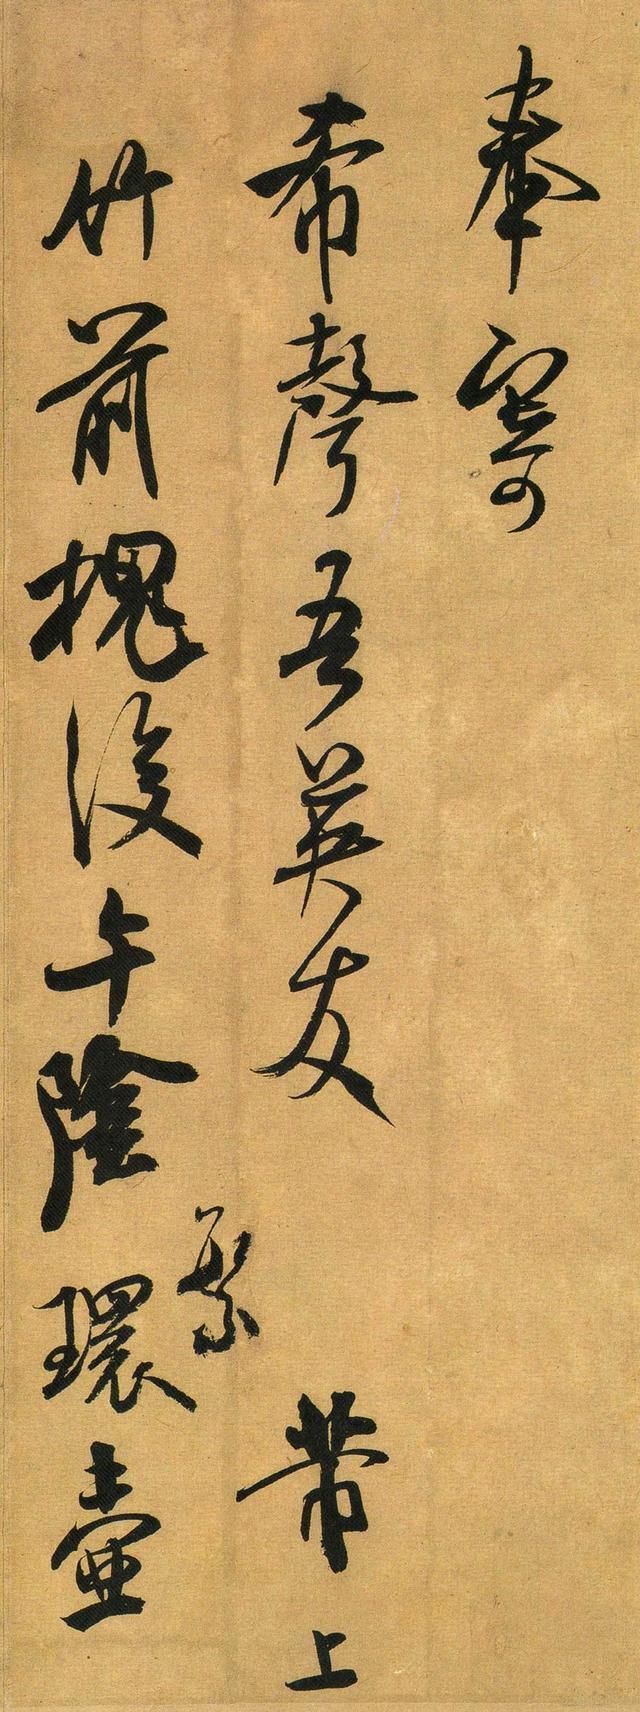 奉寄
希聲吾英友 芾上
繁
竹前槐後午陰環壺